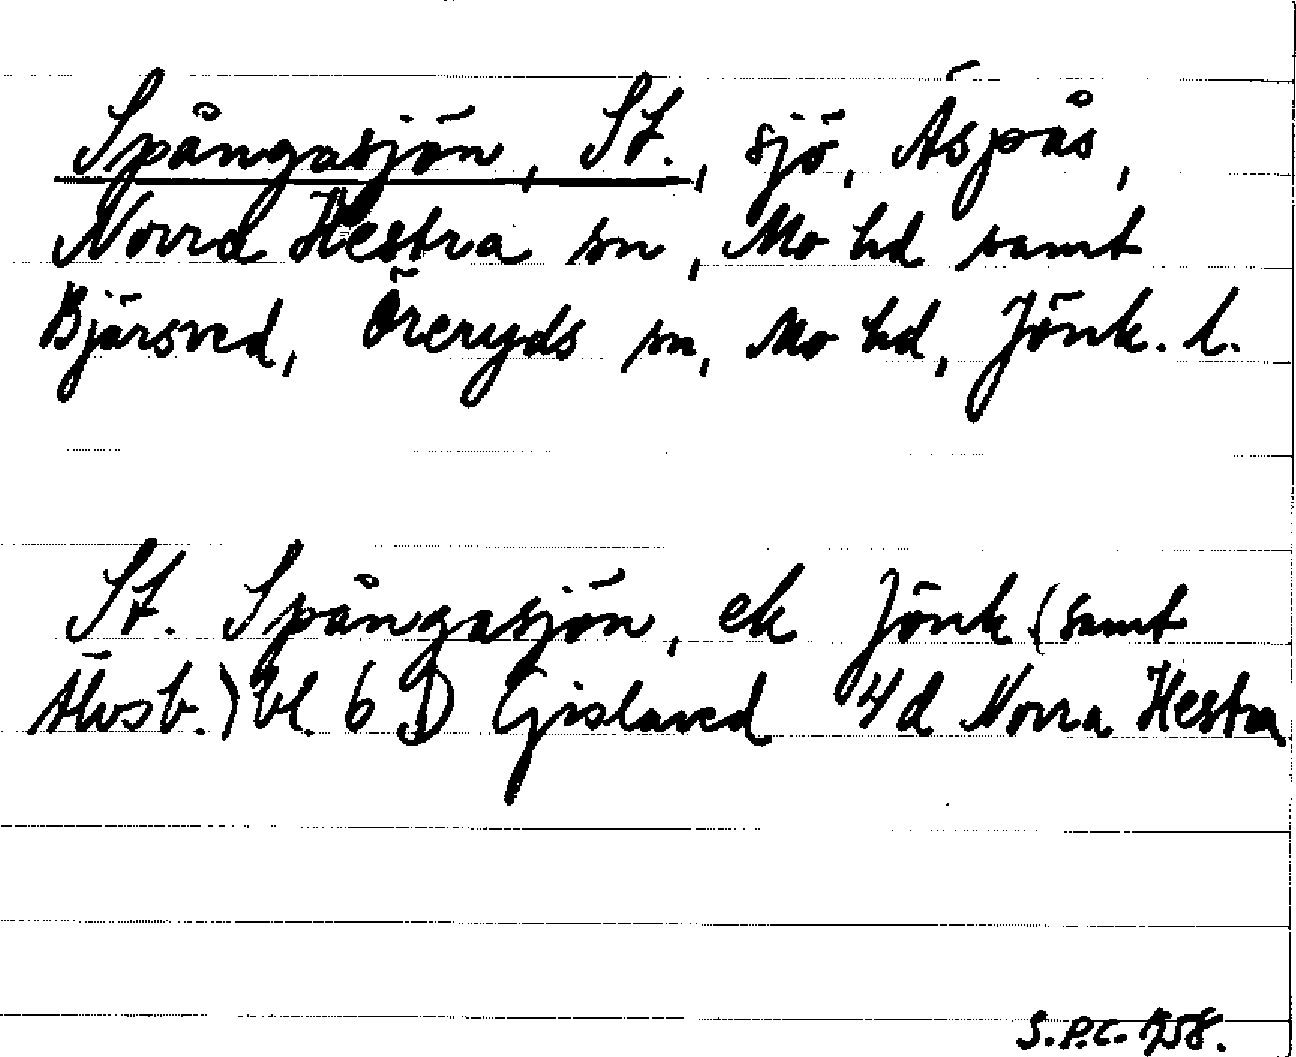 Spångasjön, St., sjö, Äspås,
Norra Hestra sn, Mo hd samt
Bjärsved, Öreryds sn, Mo hd, Jönk. l.
St. Spångasjön, ek Jönk (samt
Älvsb.) bl. 6 D Gislaved 4d Norra Hestra
S.P.C. 1958.